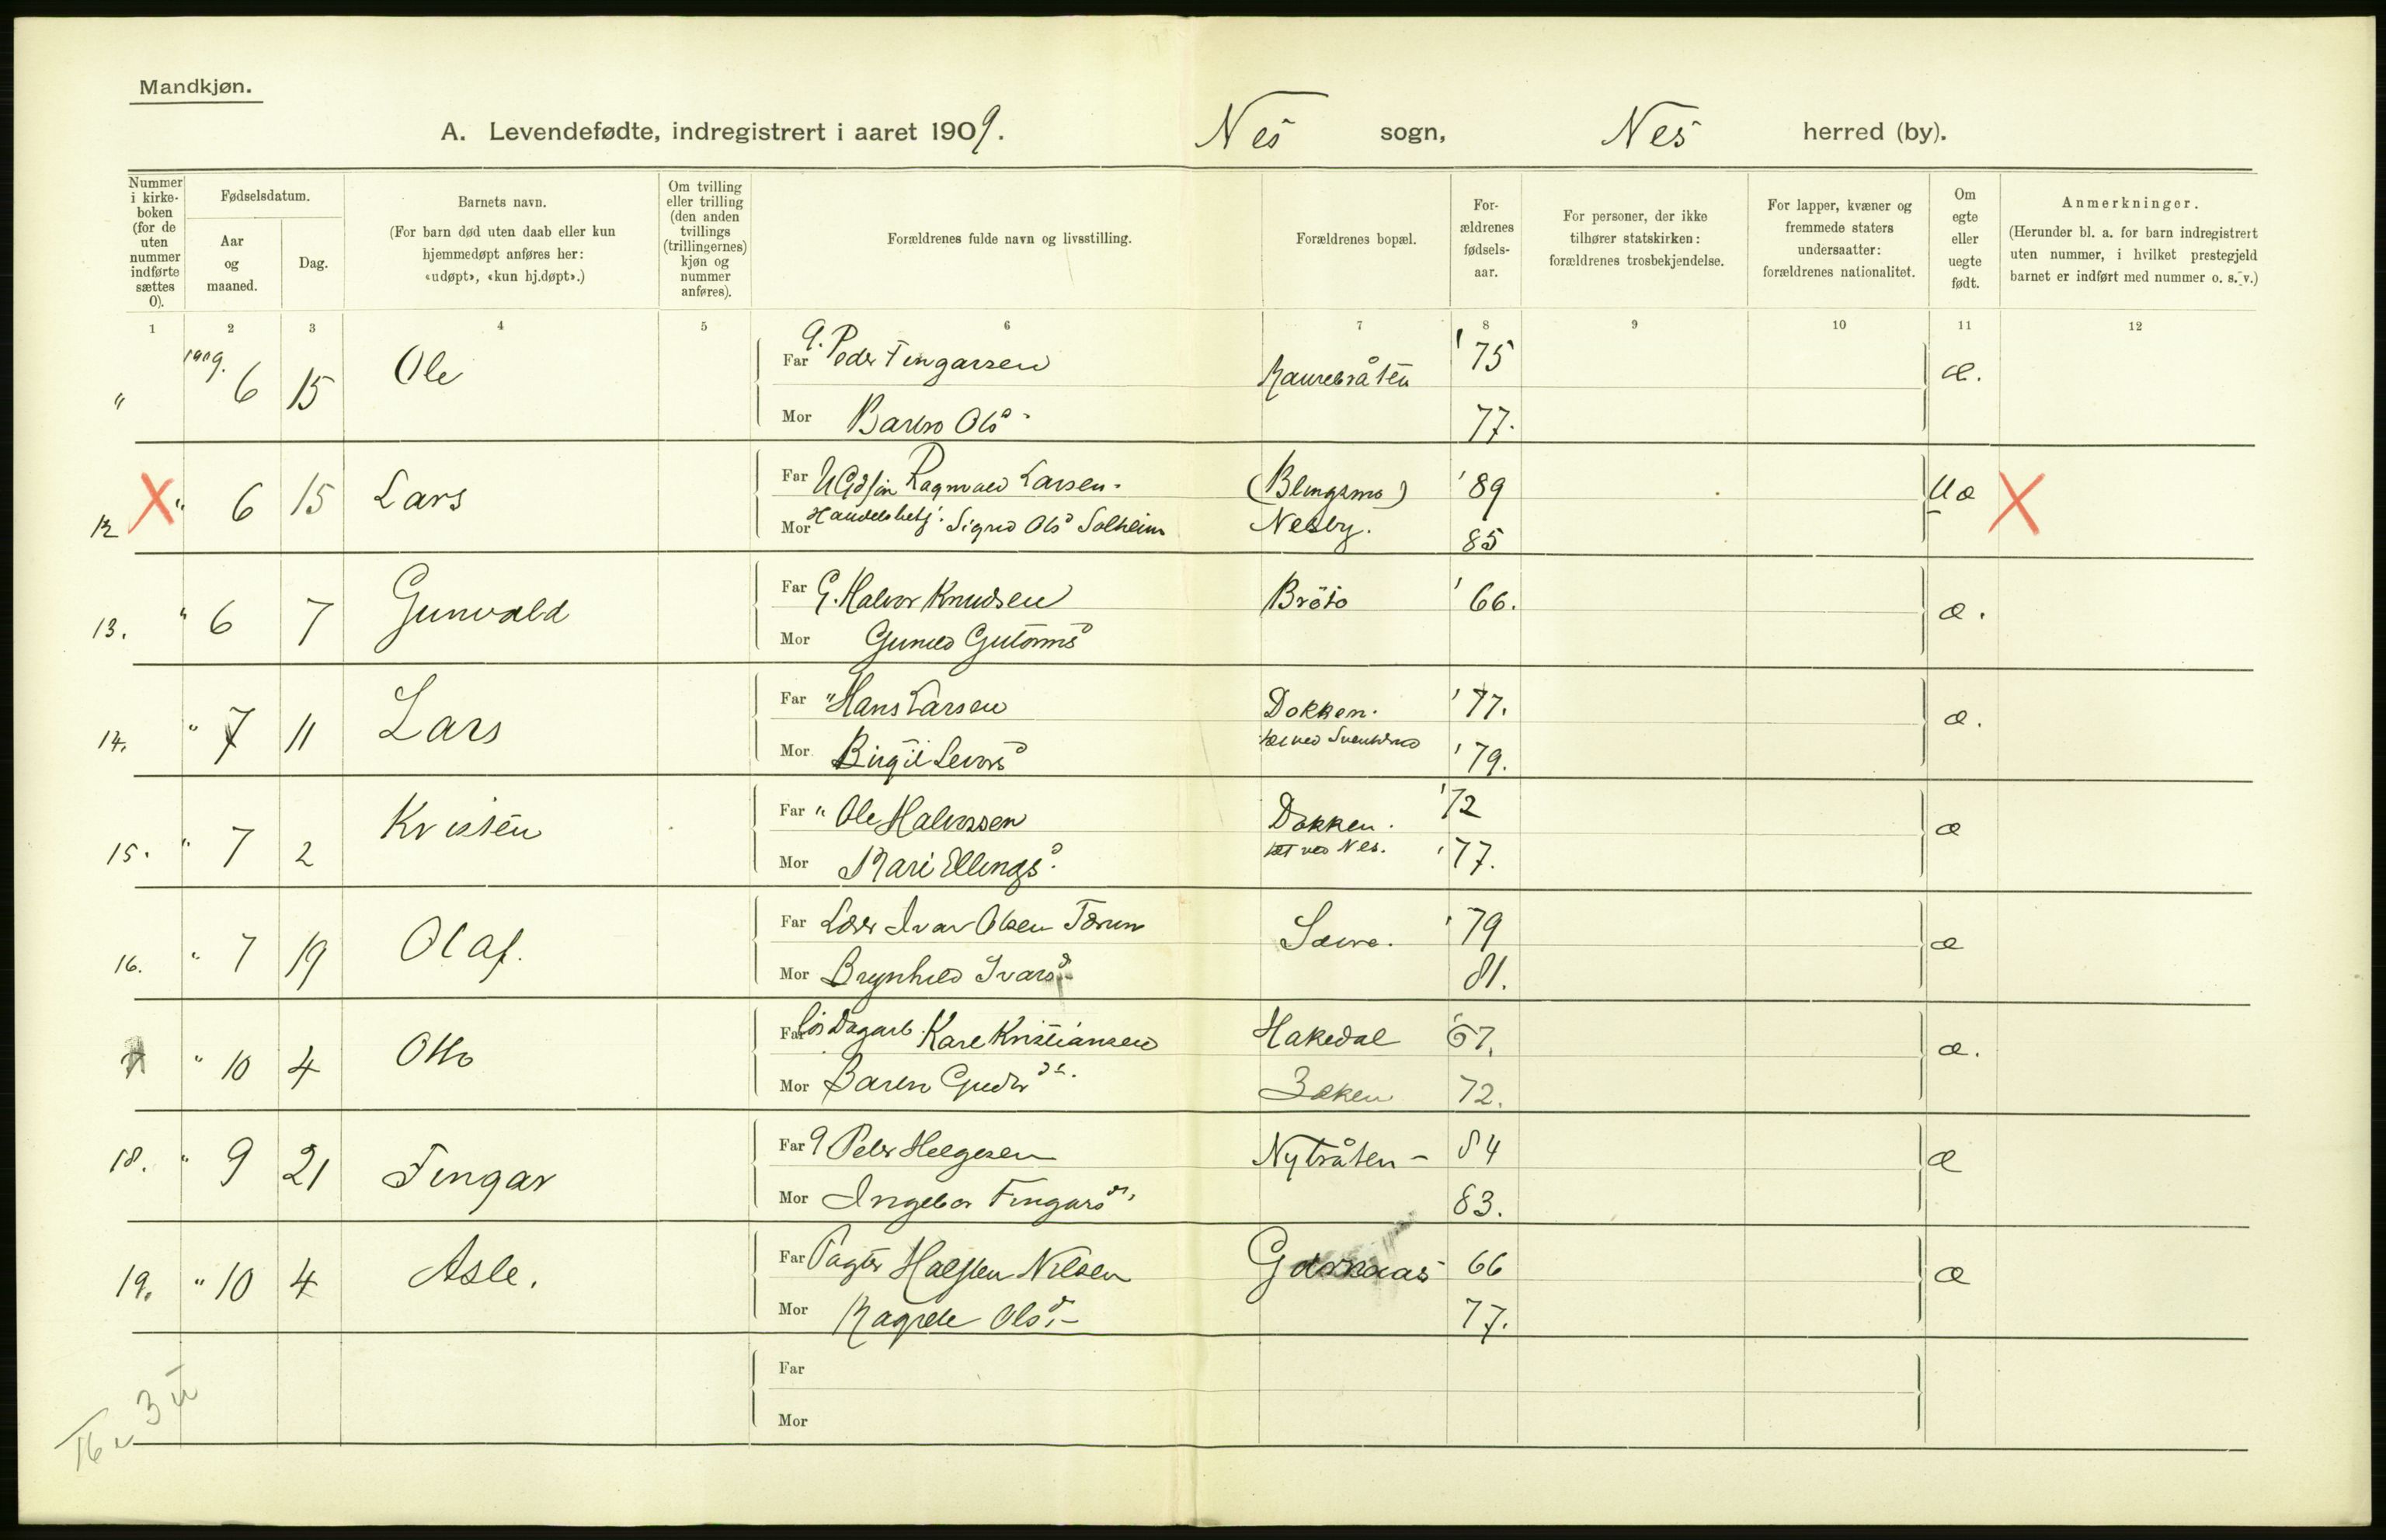 Mandkjøn.
A. Levendefødte, indregistrert i aaret 1909. Nes sogn, Nes herred (by).
Nummer i kirke-boken (for de uten nummer indførte sættes 0).
Fødselsdatum.
Aar og maaned.
Dag.
Barnets navn.
(For barn død uten daab eller kun hjemmedøpt anføres her: «udøpt», «kun hj.døpt».)
Om tvilling eller trilling (den anden tvillings (trillingernes) kjøn og nummer anføres).
Forældrenes fulde navn og livsstilling.
Forældrenes bopæl.
For-ældrenes fødsels-aar.
For personer, der ikke tilhører statskirken: forældrenes trosbekjendelse.
For lapper, kvæner og fremmede staters undersaatter: forældrenes nationalitet.
Om egte eller uegte født.
Anmerkninger.
(Herunder bl. a. for barn indregistrert uten nummer, i hvilket prestegjeld barnet er indført med nummer o. s. v.)
1 2 3 4 5 6 7 8 9 10 11 12
" 1909. 6 15 Ole Far G. Peder Fingarsen '75 æ.
Mor Barbro Olsd 77.
12 X " 6 15 Lars Far Ragnvald Larsen. (Blingsmo) '89 Uæ X
Mor Sigrid Olsd Solheim Nesby. 85
13. " 6 7 Gunvald Far G. Halvor Knudsen Bröto '66. æ.
Mor Gunild Gutormsd
14. " 7 11 Lars Far " Hans Larsen Dokken. '77. æ.
Mor Birgit '79.
15. " 7 2 Kristen Far " Ole Halvorsen Dokken. '72 æ
Mor Kari Ellingsd. tæt ved Nes. '77.
16. " 7 19 Olaf. Far Lærer Ivar Olsen '79 æ
Mor Brynhild Ivarsd. 81.
" 10 4 Otto Far Karl Kristiansen Hakedal 67. æ.
Mor 72.
18. " 9 21 Fingar Far G Peder Helgesen Nybråten - 84 æ
Mor Ingebor Fingarsd. 83.
19. " 10 4 Asle. Far Halsten Nilsen 66 æ
Mor Olsd. 77.
Far
Mor